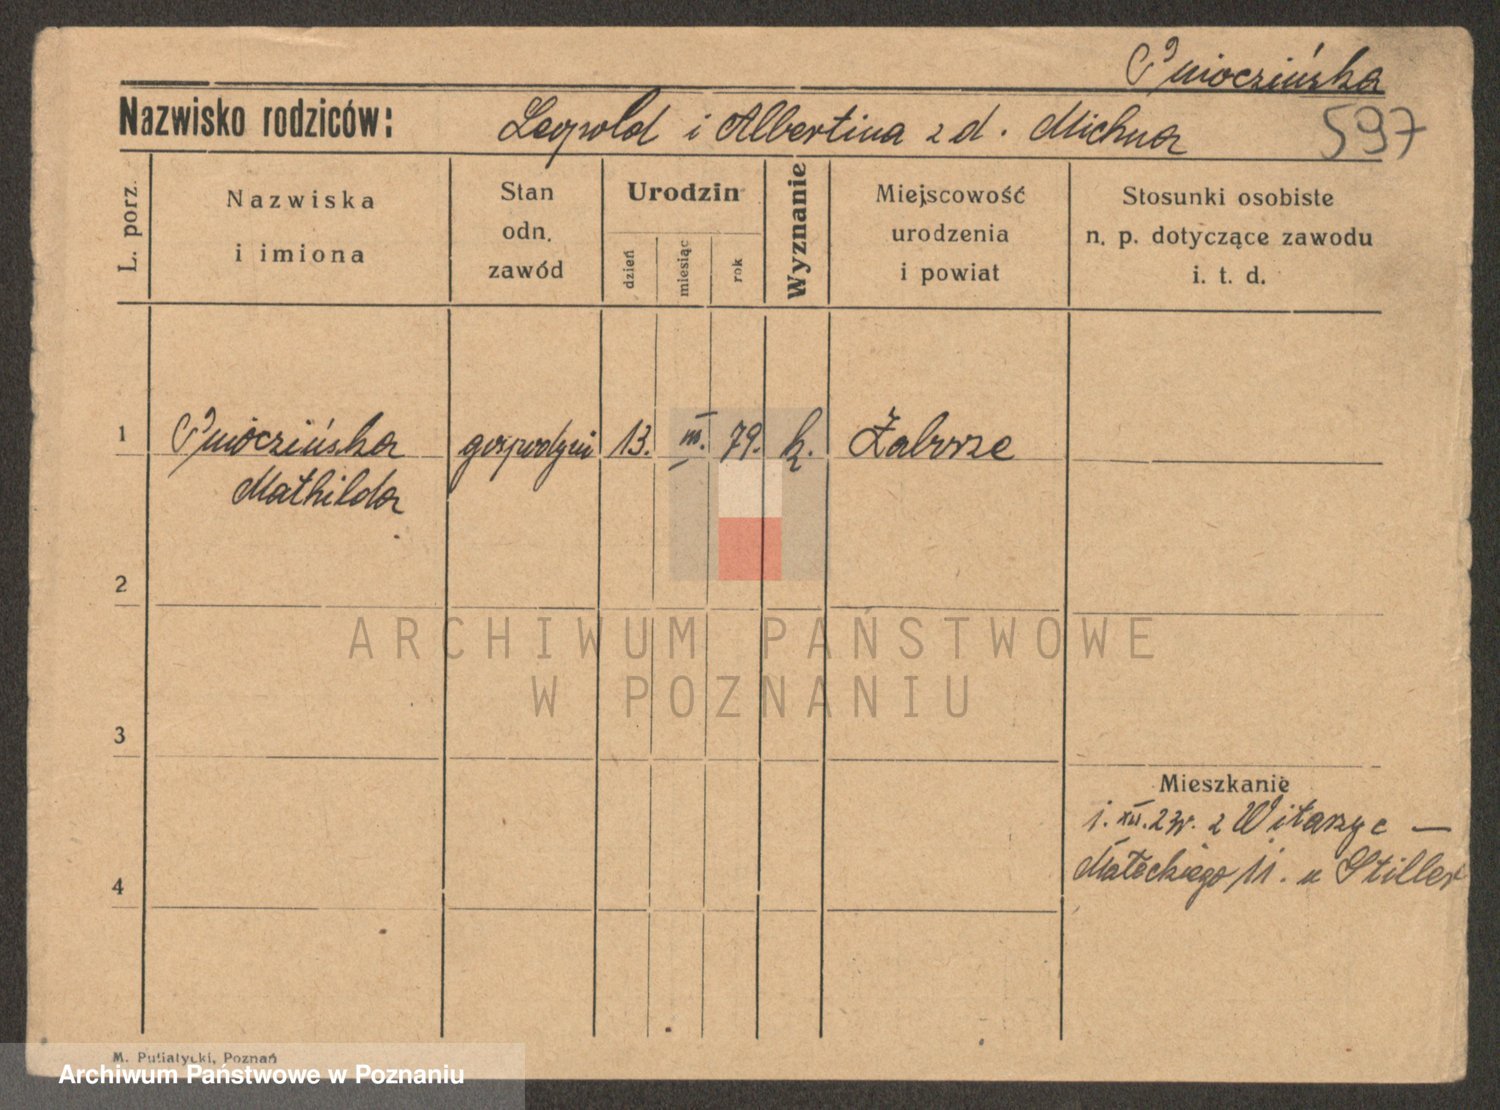 Pnioczińska
Nazwisko rodziców: Leopold i Albertina z d. Michna 597
L. porz.
Nazwiska
i imiona
Stan
odn.
zawód
Urodzin
dzień
miesiąc
rok
Wyznanie
Miejscowość
urodzenia
i powiat
Stosunki osobiste
n. p. dotyczące zawodu
i. t. d.
1 Pnioczińska gospodyni 13. III. 79. k. Zaborze
Mathilda
2
3
4
ARCHIWUM PAŃSTWOWE
W POZNANIU
Mieszkanie
1. XII. 23r. z Witaszyc —
Małeckiego 11. u Stiller
M. Putiatycki, Poznań
Archiwum Państwowe w Poznaniu